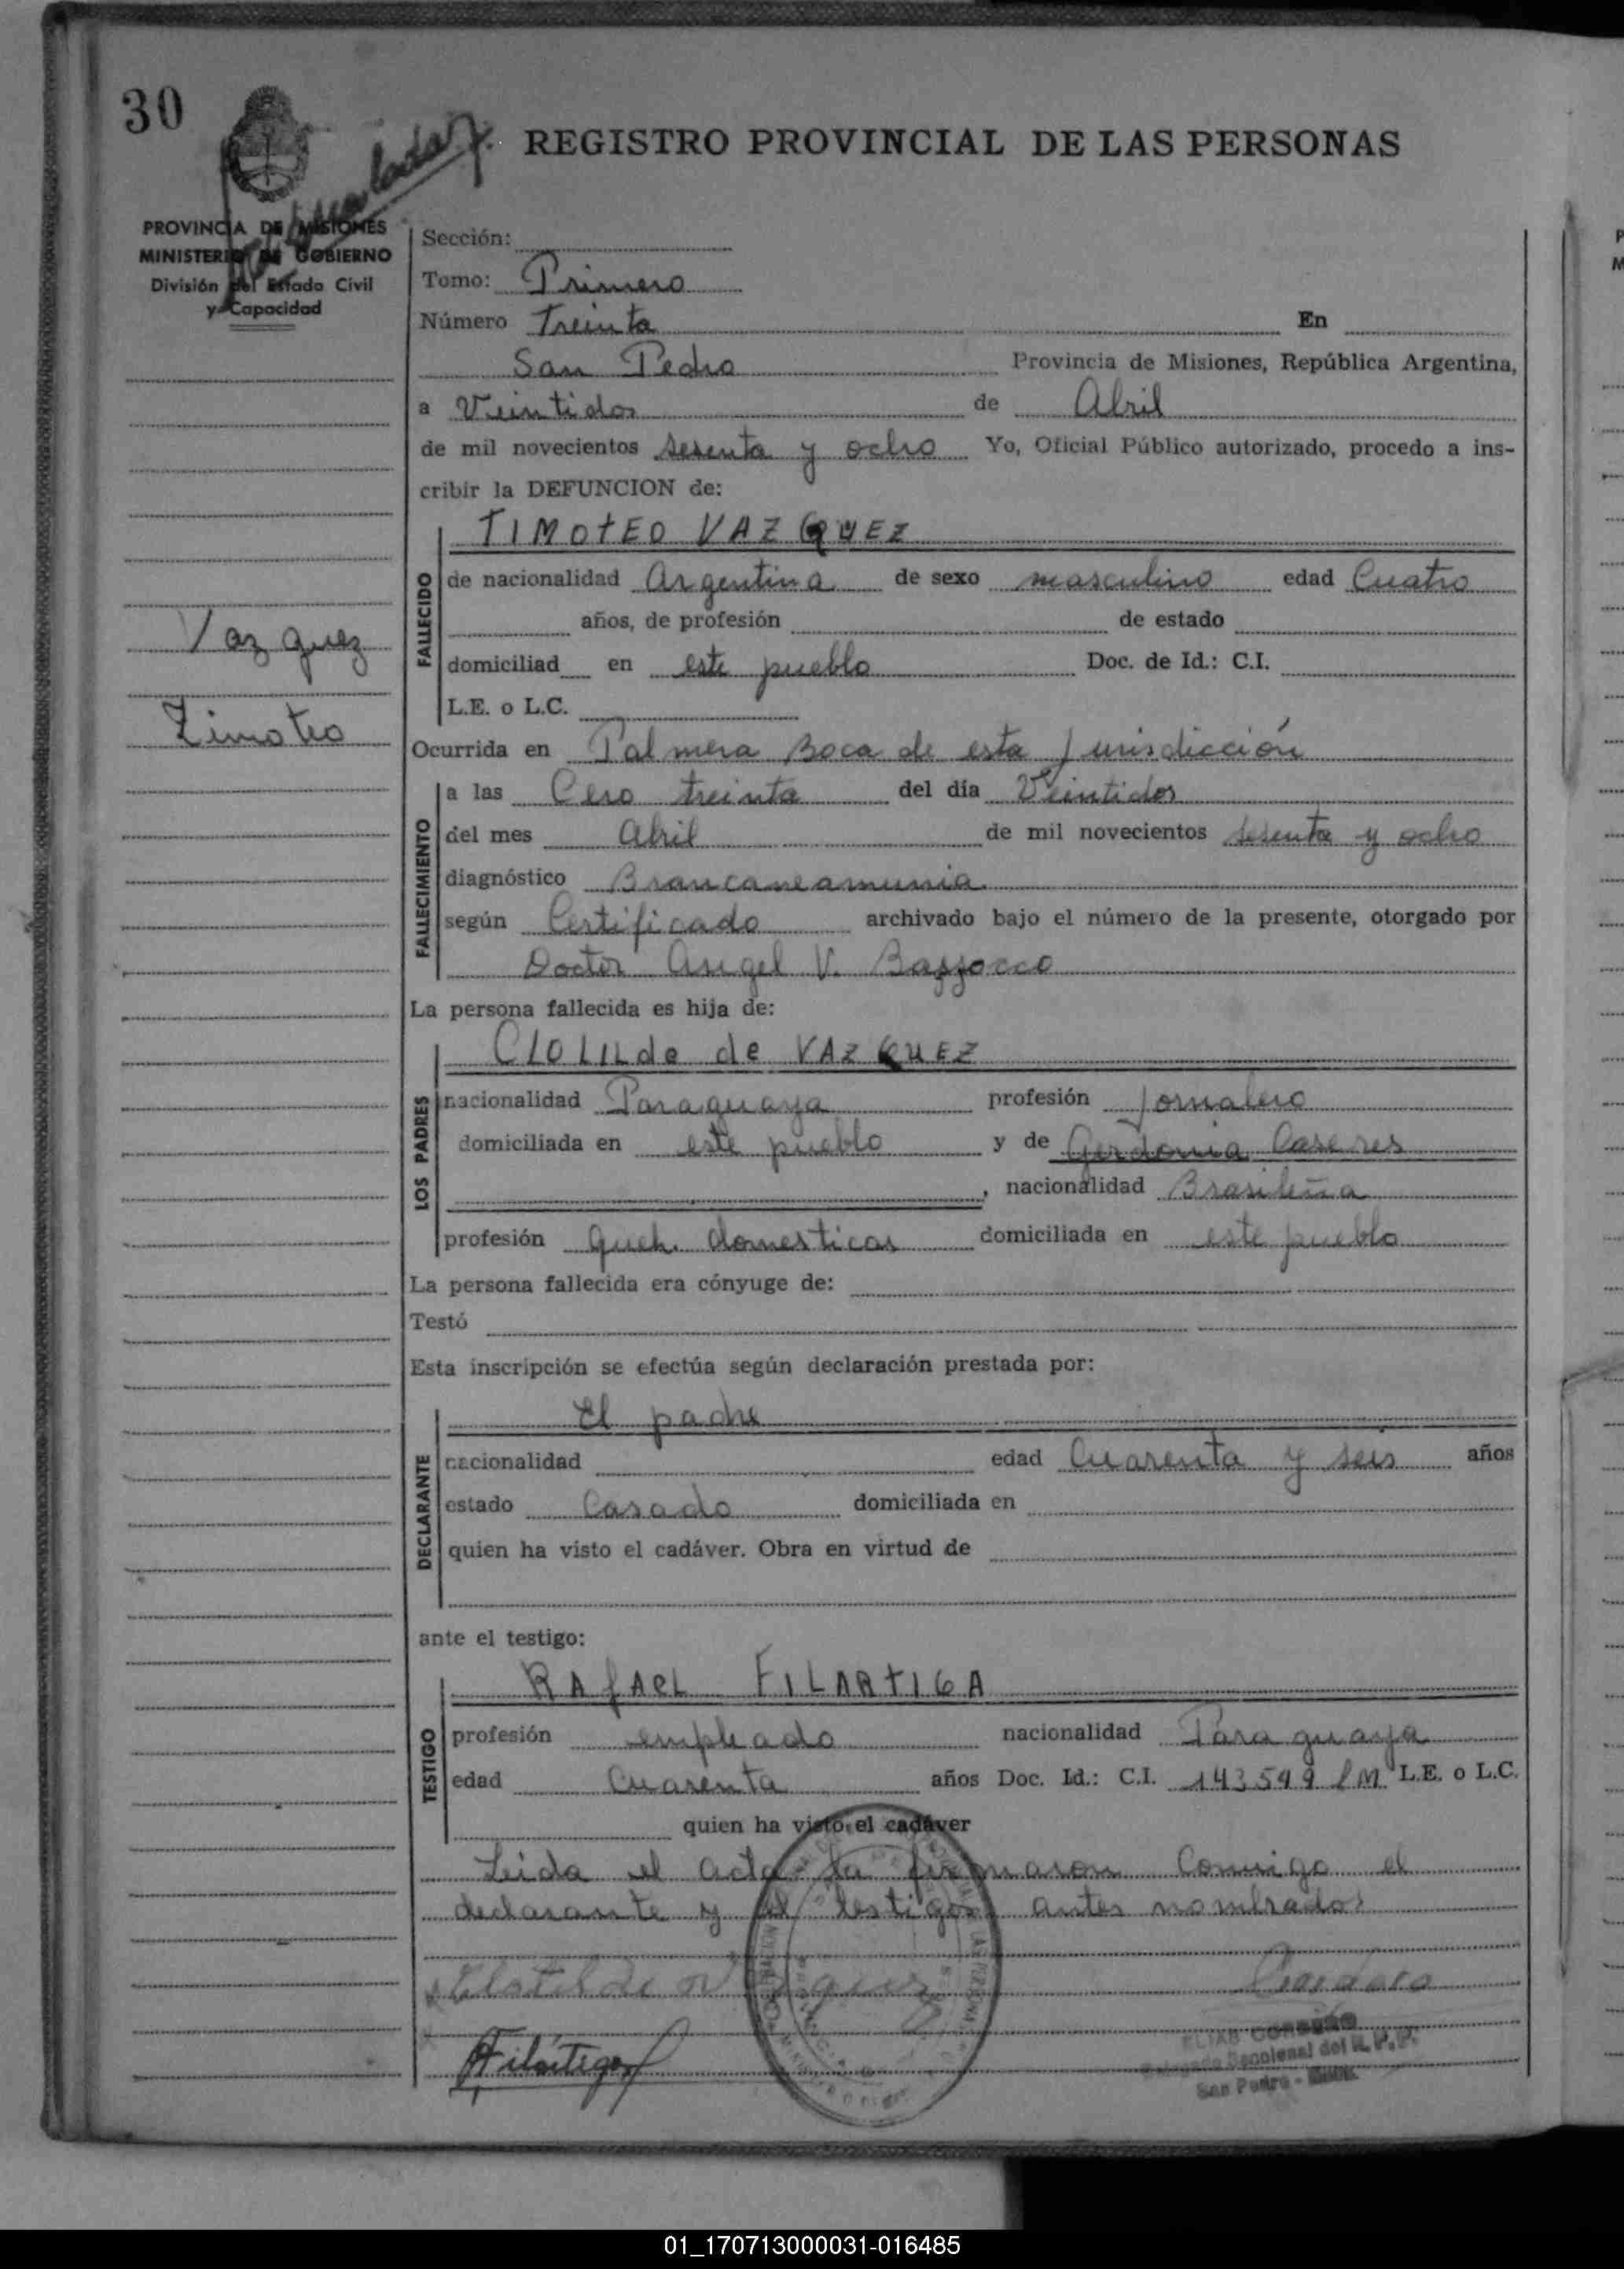 30
REGISTRO PROVINCIAL DE LAS PERSONAS
PROVINCIA DE MISIONES
MINISTERIO DE GOBIERNO
División del Estado Civil
y Capacidad
Sección:
Tomo: Primero
Número Treinta En
San Pedro Provincia de Misiones, República Argentina,
a Veintidos de Abril
de mil novecientos sesenta y ocho Yo, Oficial Público autorizado, procedo a ins-
cribir la DEFUNCION de:
TIMOTEO VAZQUEZ
FALLECIDO
de nacionalidad Argentina de sexo masculino edad Cuatro
años, de profesión de estado
Vazquez
domiciliad en este pueblo Doc. de Id.: C.I.
L.E. o L.C.
Timoteo
Ocurrida en Palmera Boca de esta Jurisdicción
FALLECIMIENTO
a las Cero treinta del día Veintidos
del mes Abril de mil novecientos sesenta y ocho
diagnóstico Brancaneamunia
según Certificado archivado bajo el número de la presente, otorgado por
Doctor Angel V. Bazzocco
La persona fallecida es hija de:
LOS PADRES
CLOLILde de VAZQUEZ
nacionalidad Paraguaya profesión Jornalero
domiciliada en este pueblo y de Gerdonia Caseres
, nacionalidad Brasileña
profesión Queh. domesticos domiciliada en este pueblo
La persona fallecida era cónyuge de:
Testó
Esta inscripción se efectúa según declaración prestada por:
DECLARANTE
El padre
nacionalidad edad Cuarenta y seis años
estado Casado domiciliada en
quien ha visto el cadáver. Obra en virtud de
ante el testigo:
TESTIGO
RAfAEL FILARTIGA
profesión empleado nacionalidad Paraguaya
edad Cuarenta años Doc. Id.: C.I. 143549 L.E. o L.C.
quien ha visto el cadáver
Leida el acta la firmaron Conmigo el
declarante y el testigos antes nombrados
Filártiga
ELIAS CORDERO
Seccional del R. P. P.
San Pedro -
01_170713000031-016485